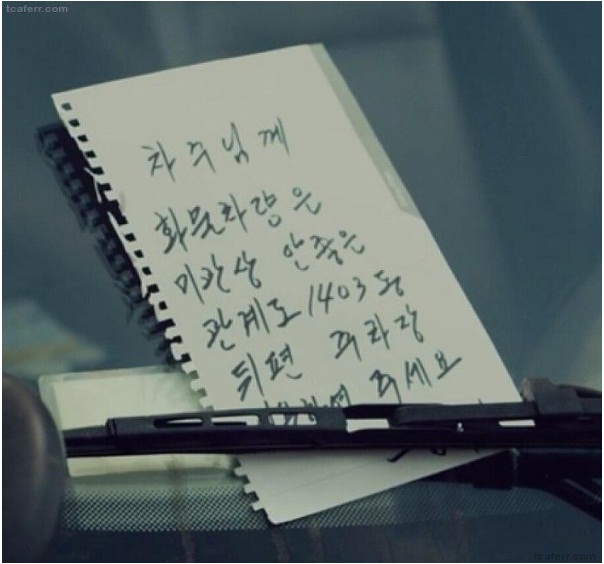 tcaferr.com
차주님께
화물차량은
미관상 안좋은
관계로 1403동
뒤편 주차장
주세요
tcaferr.com